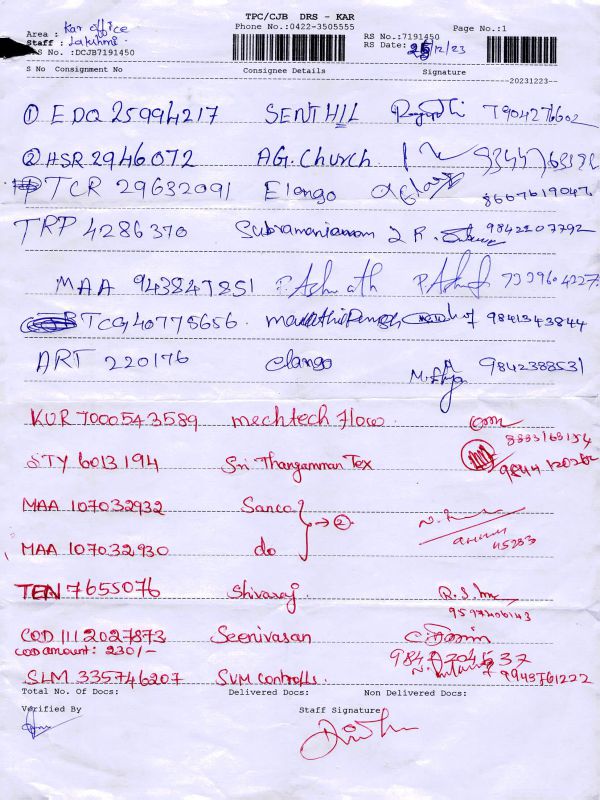 TPC/CJB DRS - KAR
Phone No.:0422-3505555
Area : Kar office
Staff : Lakshmi.
RS No. :DCJB7191450
RS No.:7191450
RS Date: 25/12/23
Page No.:1
S No Consignment No Consignee Details Signature
20231223
① EDQ 25994217 SENTHIL 7904276602
② HSR 2946072 A.G. Church.
TCR 29632091 Elango 8667619047
TRP 4286370 Subramaniam 9842207792
MAA 943847851 P. Ashwath
TCG 40778656. 9841343844
ART 220176 elango 9842388531
KUR 7000543589 mechtech flow
STY 6013194 Sri Thangamman Tex
MAA 107032932 Sanco
→ ②
MAA 107032930 do
45233
TEN 7655076 Shivaraj 9597406143
COD 1112027873 Seenivasan
COD amount: 230/-
SLM 335746207 SVM controlls. 9943761222
Total No. Of Docs: Delivered Docs: Non Delivered Docs:
Verified By Staff Signature